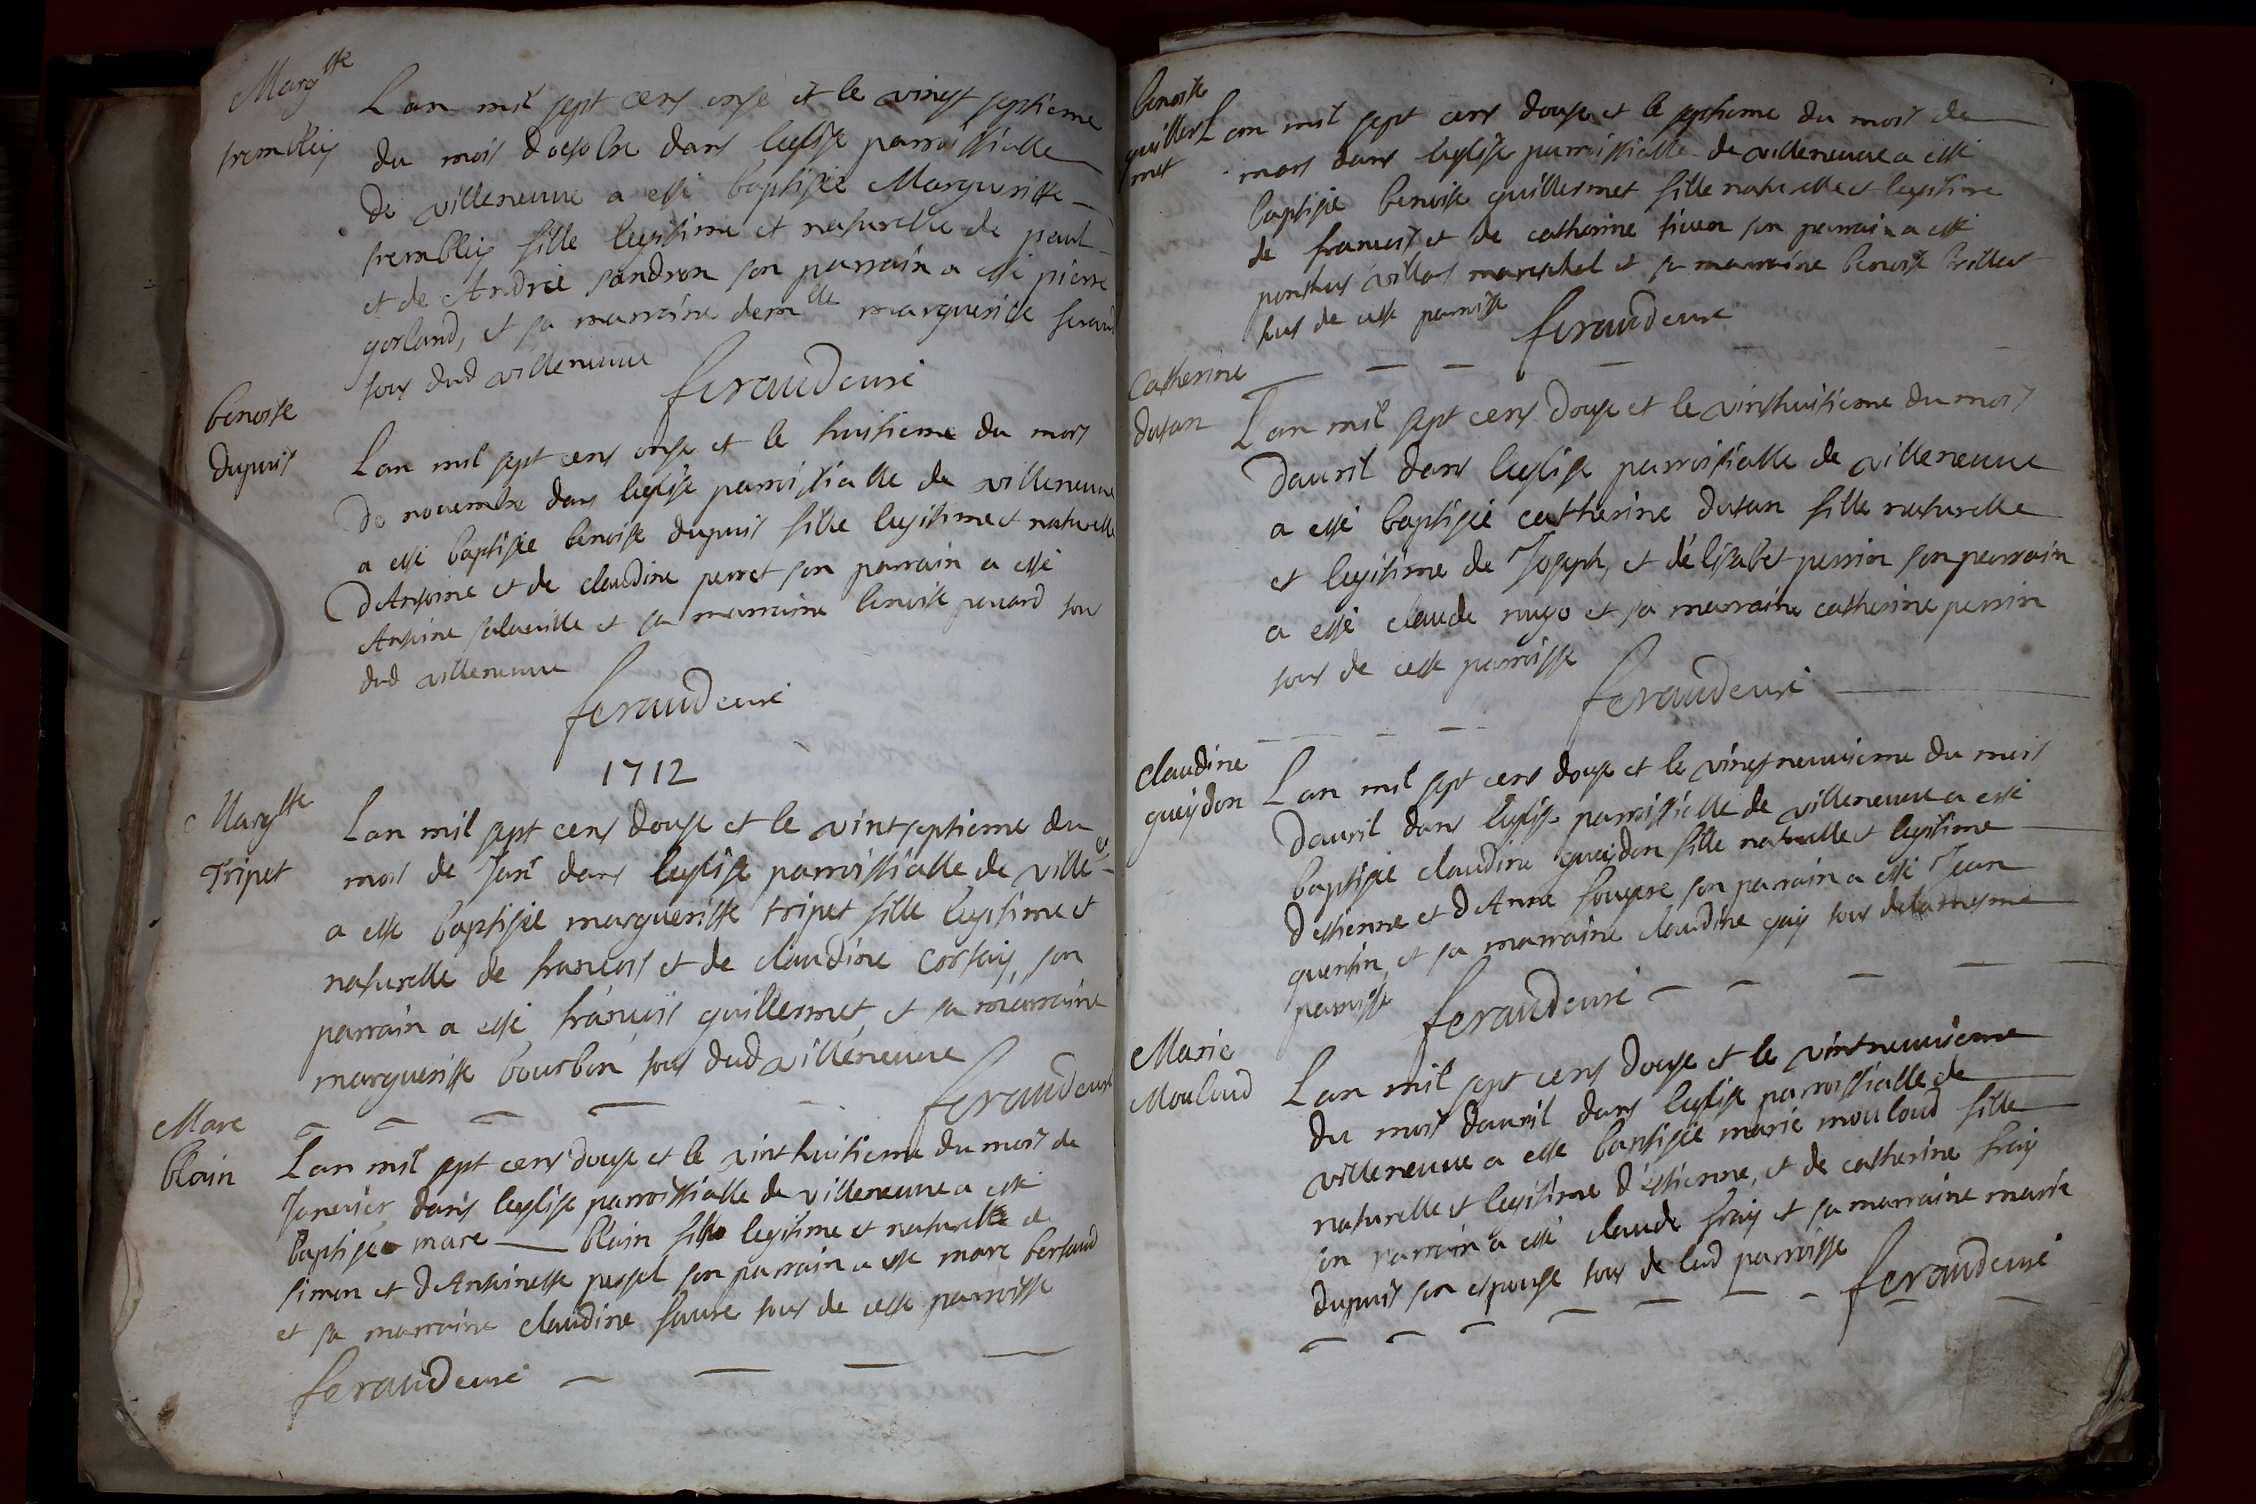 Marg.tte
trembley
Lan mil sept cens onse et le vingt septieme
du mois doctobre dans leglise parroissialle
de villeneuve a esté baptisée Margueritte
trembley fille legitime et naturelle de paul
et de Andrée sandron son parrain a esté pierre
gorland, et sa marraine dem.lle margueritte feraud
tous dud villeneuve
feraud curé
benoite
dupuis
Lan mil sept cens onse et le huitieme du mois
de novembre dans leglise parroissialle de villeneuve
a esté baptisée benoite dupuis fille legitime et naturelle
dAntoine et de claudine perret son parrain a esté
Antoine salaville et sa marraine benoite penard tous
dud villeneuve
feraud curé
1712
Marg.tte
Tripet
Lan mil sept cens douse et le vintseptieme du
mois de Janr dans leglise parroissialle de ville
a esté baptisée margueritte tripet fille legitime et
naturelle de francois et de claudine corsay, son
parrain a esté francois guillermet, et sa marraine
margueritte bourbon, tous dud villeneuve
feraud curé
Marc
blain
Lan mil sept cens douse et le vinthuitieme du mois de
Janvier dans leglise parroissialle de villeneuve a esté
baptisé marc blain fils legitime et naturel de
simon et dAntoinette pessel son parrain a esté marc bertaud
et sa marraine claudine favre tous de cette parroisse
feraud curé
benoite
guiller
met
Lan mil sept cens douse et le septieme du mois de
mars dans leglise parroissialle de villeneuve a esté
baptisée benoite guillermet fille naturelle et legitime
de francois et de catherine son parrain a esté
ponthus villas mareschal et sa marraine benoite brillat
tous de cette parroisse
feraud curé
Catherine
dutan
Lan mil sept cens douse et le vinthuitieme du mois
davril dans leglise parroissialle de villeneuve
a esté baptisée catherine dutan fille naturelle
et legitime de Joseph, et délisabet perrin son parrain
a esté claude nugo et sa marraine catherine perrin
tous de cette parroisse
feraud curé
Claudine
gueydon
Lan mil sept cens douse et le vingtneuvieme du mois
davril dans leglise parroissialle de villeneuve a esté
baptisée claudine gueydon fille naturelle et legitime
destienne et dAnne fougere son parrain a esté Jean
quentin, et sa marraine claudine gay tous de la mesme
parroisse
feraud curé
Marie
Mouloud
Lan mil sept cens douse et le vintneuvieme
du mois davril dans leglise parroissialle de
villeneuve a esté baptisée marie mouloud fille
naturelle et legitime d'estienne, et de catherine fray
son parrain a esté claude fray et sa marraine marie
dupuis son espouse tous de lad parroisse
feraud curé